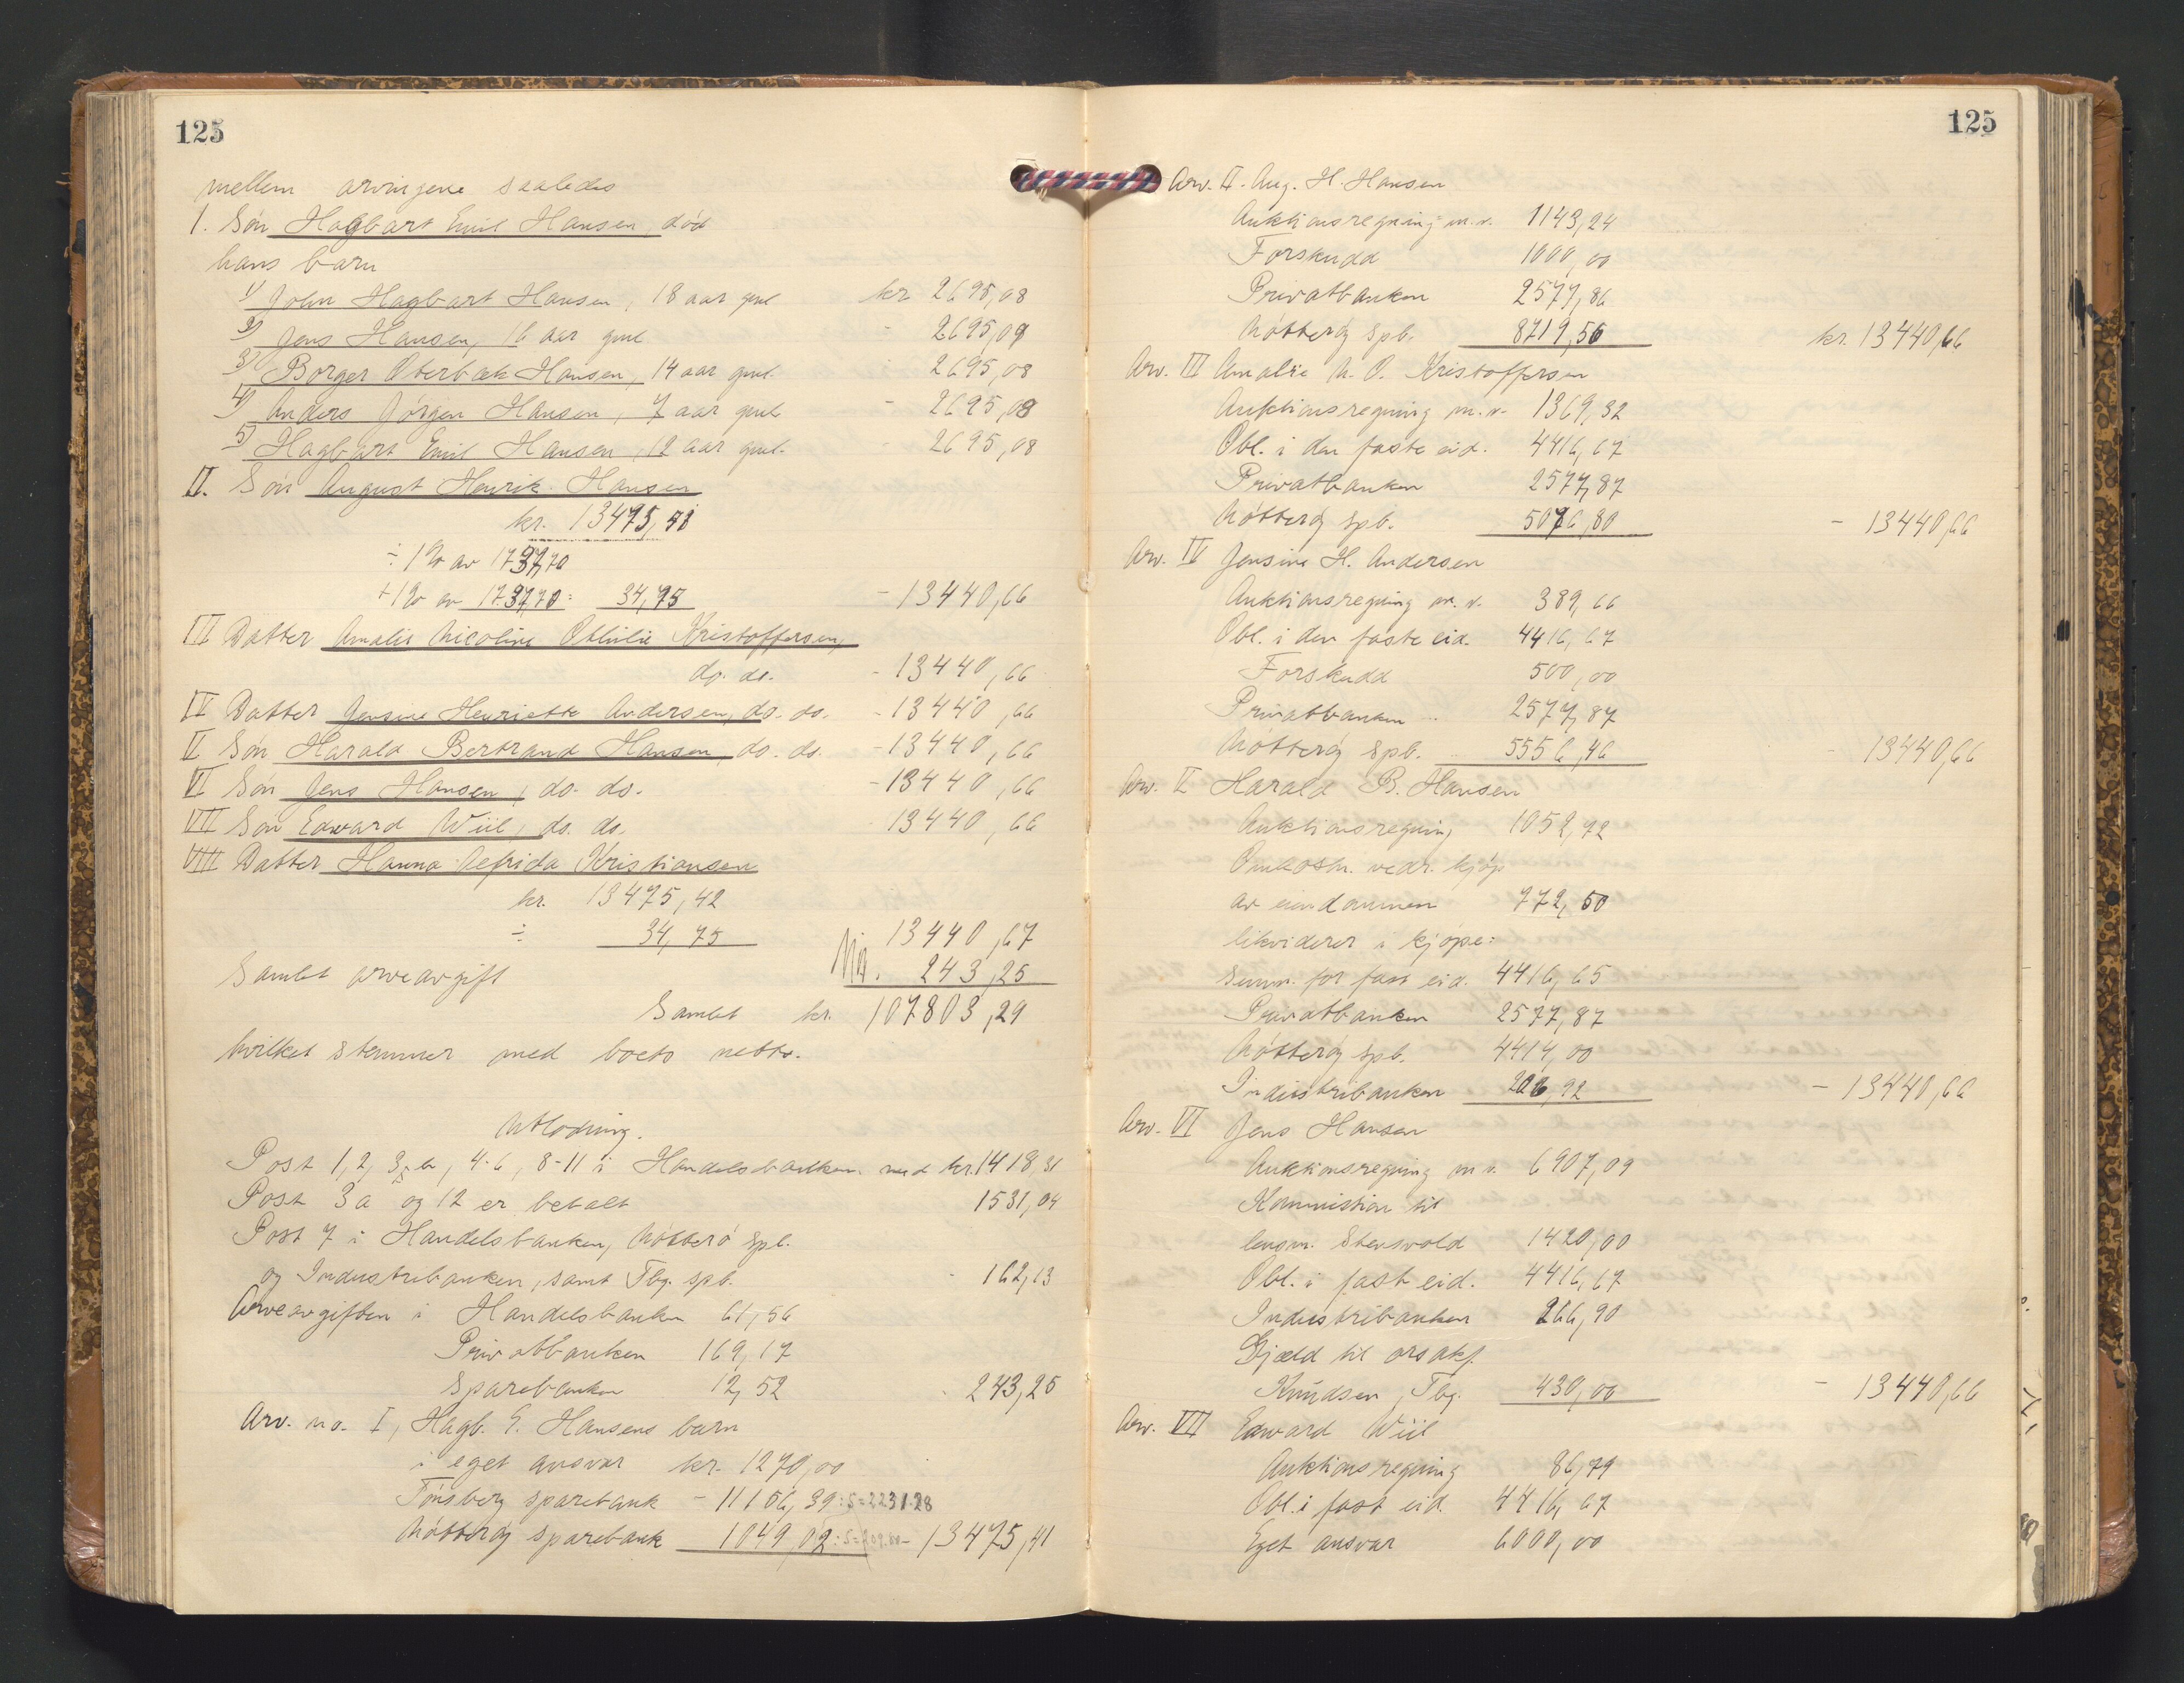 125
mellem arvingene saaledes
1. Søn Hagbart Emil Hansen, død
hans barn
1) John Hagbart Hansen, 18 aar gml kr 2695,08
2) Jens Hansen, 16 aar gml - 2695,09
3) Borger Oterbæk Hansen, 14 aar gml. - 2695,08
4) Anders Jörgen Hansen, 7 aar gml - 2695,08
5) Hagbart Emil Hansen, 12 aar gml. - 2695,08
II. Søn August Henrik Hansen
kr. 13475,41
÷ 1% av 1737,70
+ 1% av 1737,70: 34,75 - 13440,66
III Datter Amalie Nicoline Othilie Kristoffersen,
do. do. - 13440,66
IV Datter Jensine Henriette Andersen, do. do. - 13440,66
V Søn Harald Bertrand Hansen, do. do. - 13440,66
VI Søn Jens Hansen, do. do. - 13440,66
VII Søn Edward Wiil, do. do. - 13440,66
VIII Datter Hanna Alfrida Kristiansen
kr. 13475,42
÷ 34,75 13440,67
Samlet arveavgift 243,25
Samlet kr. 107803,29
hvilket stemmer med boets netto.
Utlodning.
Post 1, 2, 3 b, 4-6, 8-11 i Handelsbanken med kr. 1418,31
Post 3a og 12 er betalt 1531,04
Post 7 i Handelsbanken, Nøtterø spb.
og Industribanken, samt Tbg. spb. - 162,13
Arveavgiften i Handelsbanken 61,56
Privatbanken 169,17
Sparebanken 12,52 - 243,25
Arv. no. I, Hagb. E. Hansens barn
i eget ansvar kr. 1270,00
Tønsberg sparebank - 11156,39 :5=2231.28
Nøtterøy sparebank 1049,02 :5=209.80 - 13475,41
125
Arv. II. Aug. H. Hansen
Auktionsregning m.v. 1143,24
Forskudd 1000,00
Privatbanken 2577,86
Nøtterøy spb. 8719,56 kr. 13440,66
Arv. III Amalie N. O. Kristoffersen
Auktionsregning m.v. 1369,32
Obl. i den faste eid. 4416,67
Privatbanken 2577,87
Nøtterøy spb. 5076,80 - 13440,66
Arv. IV Jensine H. Andersen
Auktionsregning m.v. 389,66
Obl. i den faste eid. 4416,67
Forskudd 500,00
Privatbanken 2577,87
Nøtterøy spb. 5556,46 - 13440,66
Arv. V Harald B. Hansen
Auktionsregning 1052,72
Omkostn. vedr. kjøp
av eiendommen 772,50
likviderer i kjøpe:
summ. for fast eid. 4416,65
Privatbanken 2577,87
Nøtterøy spb. 4414,00
Industribanken 206,92 - 13440,66
Arv. VI Jens Hansen
Auktionsregning m.v. 6907,09
Kommission til
lensm. Stenswold 1420,00
Obl. i fast eid. 4416,67
Industribanken 266,90
Gjæld til orsakf.
Knudsen, Tbg. 430,00 - 13440,66
Arv. VII Edward Wiil
Auktionsregning 86,79
Obl. i fast eid. 4416,67
Eget ansvar 6000,00